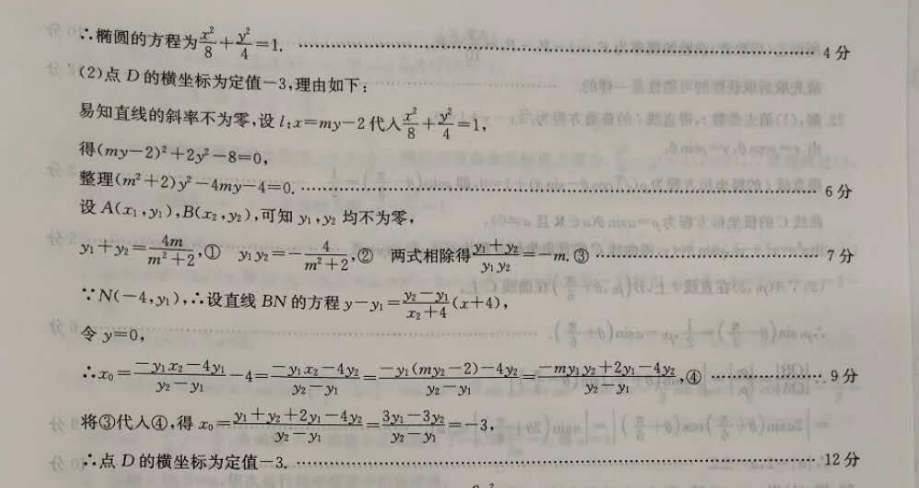 ∴椭圆的方程为x²/8+y²/4=1. …… 4分
(2)点D的横坐标为定值-3,理由如下:
易知直线的斜率不为零,设l:x=my-2代入x²/8+y²/4=1,
得(my-2)²+2y²-8=0,
整理(m²+2)y²-4my-4=0. …… 6分
设A(x₁,y₁),B(x₂,y₂),可知y₁,y₂均不为零,
y₁+y₂=4m/(m²+2),① y₁y₂=-4/(m²+2),② 两式相除得(y₁+y₂)/(y₁y₂)=-m.③ …… 7分
∵N(-4,y₁),∴设直线BN的方程y-y₁=(y₂-y₁)/(x₂+4)(x+4),
令y=0,
∴x₀=(-y₁x₂-4y₁)/(y₂-y₁)-4=(-y₁x₂-4y₂)/(y₂-y₁)=(-y₁(my₂-2)-4y₂)/(y₂-y₁)=(-my₁y₂+2y₁-4y₂)/(y₂-y₁),④ …… 9分
将③代入④,得x₀=(y₁+y₂+2y₁-4y₂)/(y₂-y₁)=(3y₁-3y₂)/(y₂-y₁)=-3,
∴点D的横坐标为定值-3. …… 12分